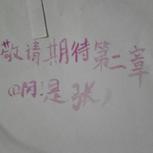 敬请期待第二章
(啊是张)